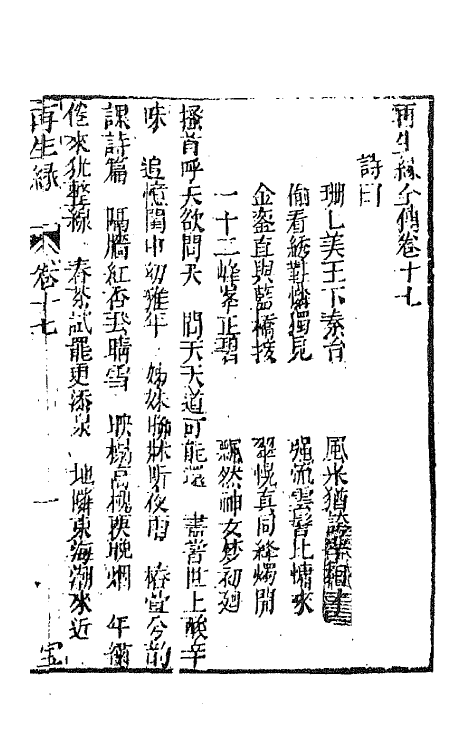 再生緣全傳卷十七
詩曰
珊〻美玉下秦台　風采猶
偷看綉鞋憐獨見　强流雲髻比慵來
金盌直與藍橋接　翠幌真同絳燭開
一十二峰峯正碧　飄然神女梦初廻
搔首呼天欲問天　問天天道可能還　盡嘗世上酸辛
味　追憶閨中幼稚年　姊妹聯牀听夜雨　椿萱分韵
課詩篇　隔牆紅杏飛晴雪　映榻高槐晚烟　午綉
倦來犹整線　春茶試罷更添泉　地隣東海潮來近
再生緣　卷十七　一　宝